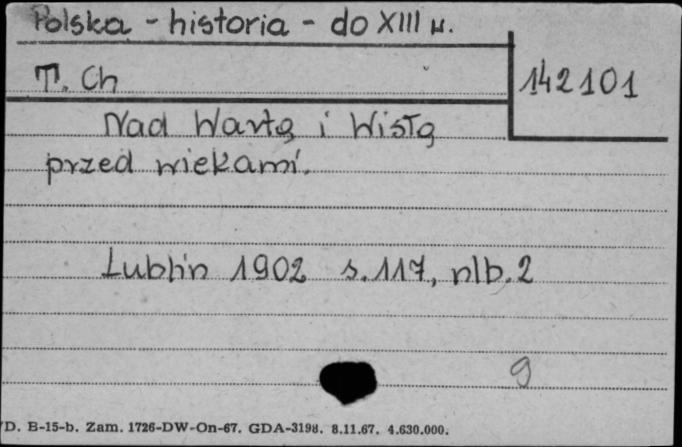 Polska - historia - do XIII w.
T. Ch
142101
Nad Wartą i Wisłą
przed wiekami.
Lublin 1902 s. 117, nlb. 2
9
D. B-15-b. Zam. 1726-DW-On-67. GDA-3198. 8.11.67. 4.630.000.